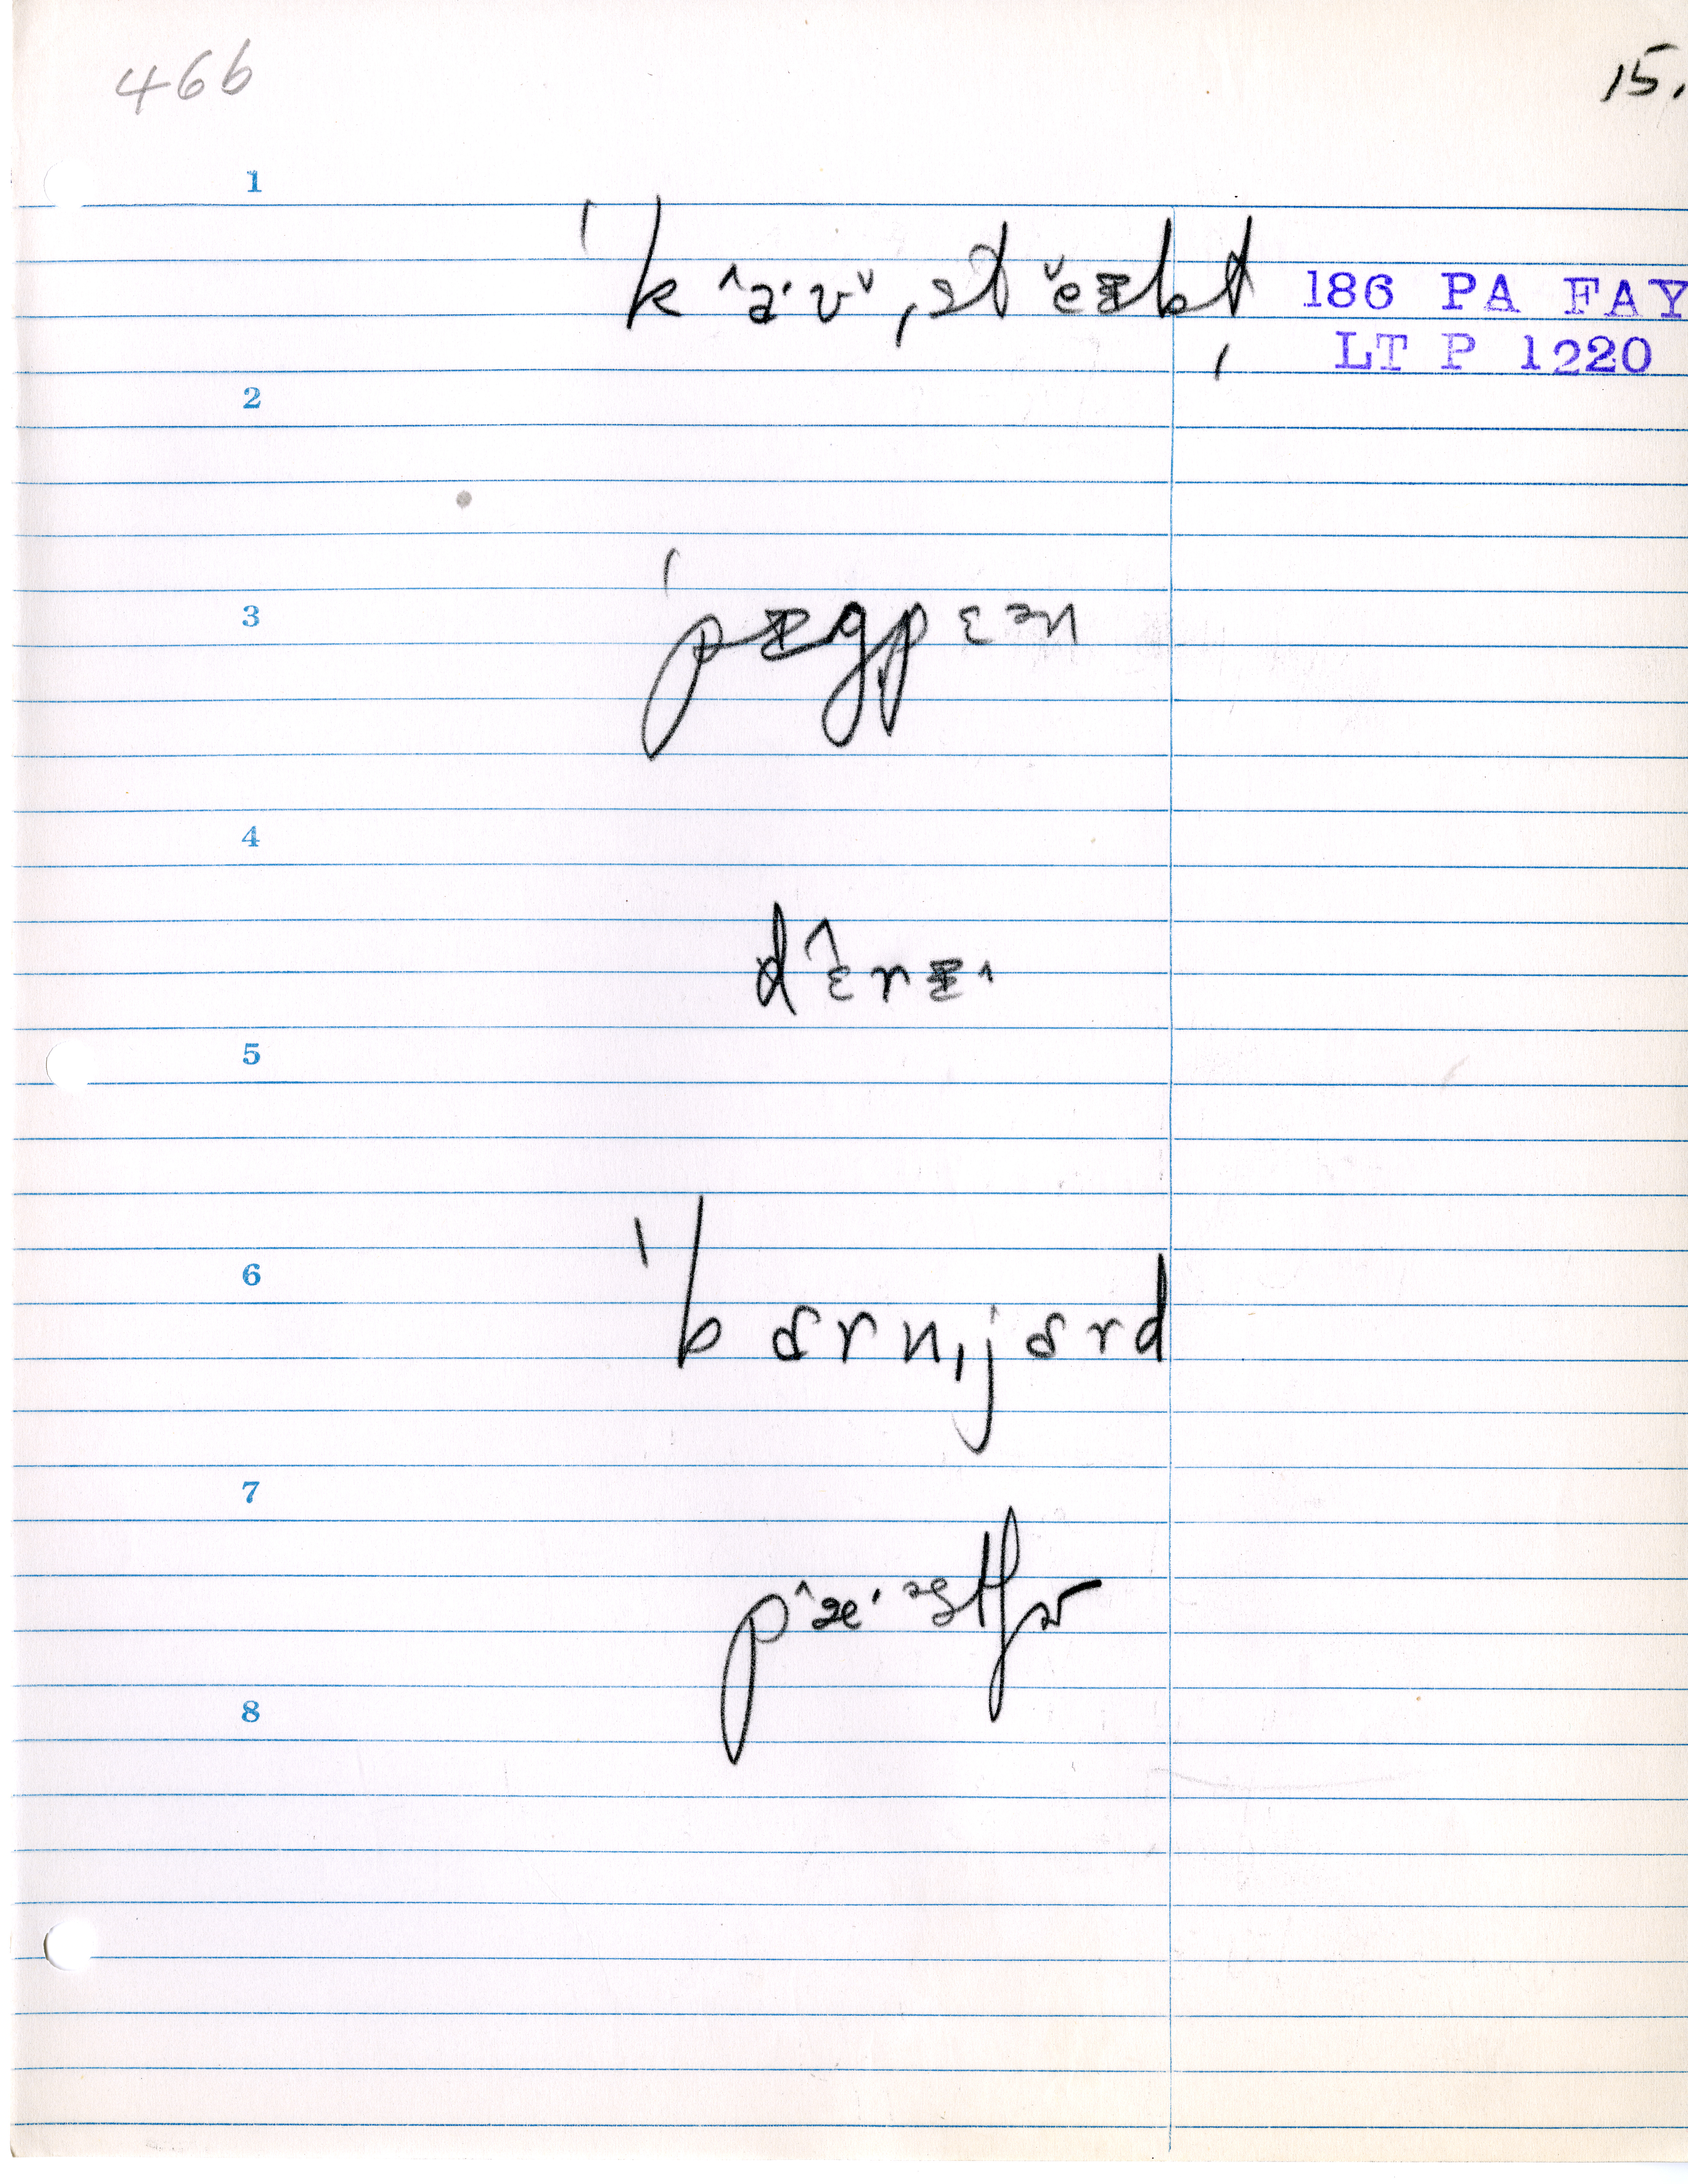 46b
15.
1
ˈkâ·vˇˌstĕɪbɫ̩
186 PA FAY
LT P 1220
2
3
ˈpɪgpɛən
4
dɛ̂rɪ^
5
6
ˈbɑrnˌjɑrd
7
pæ̂·əstʃɚ
8